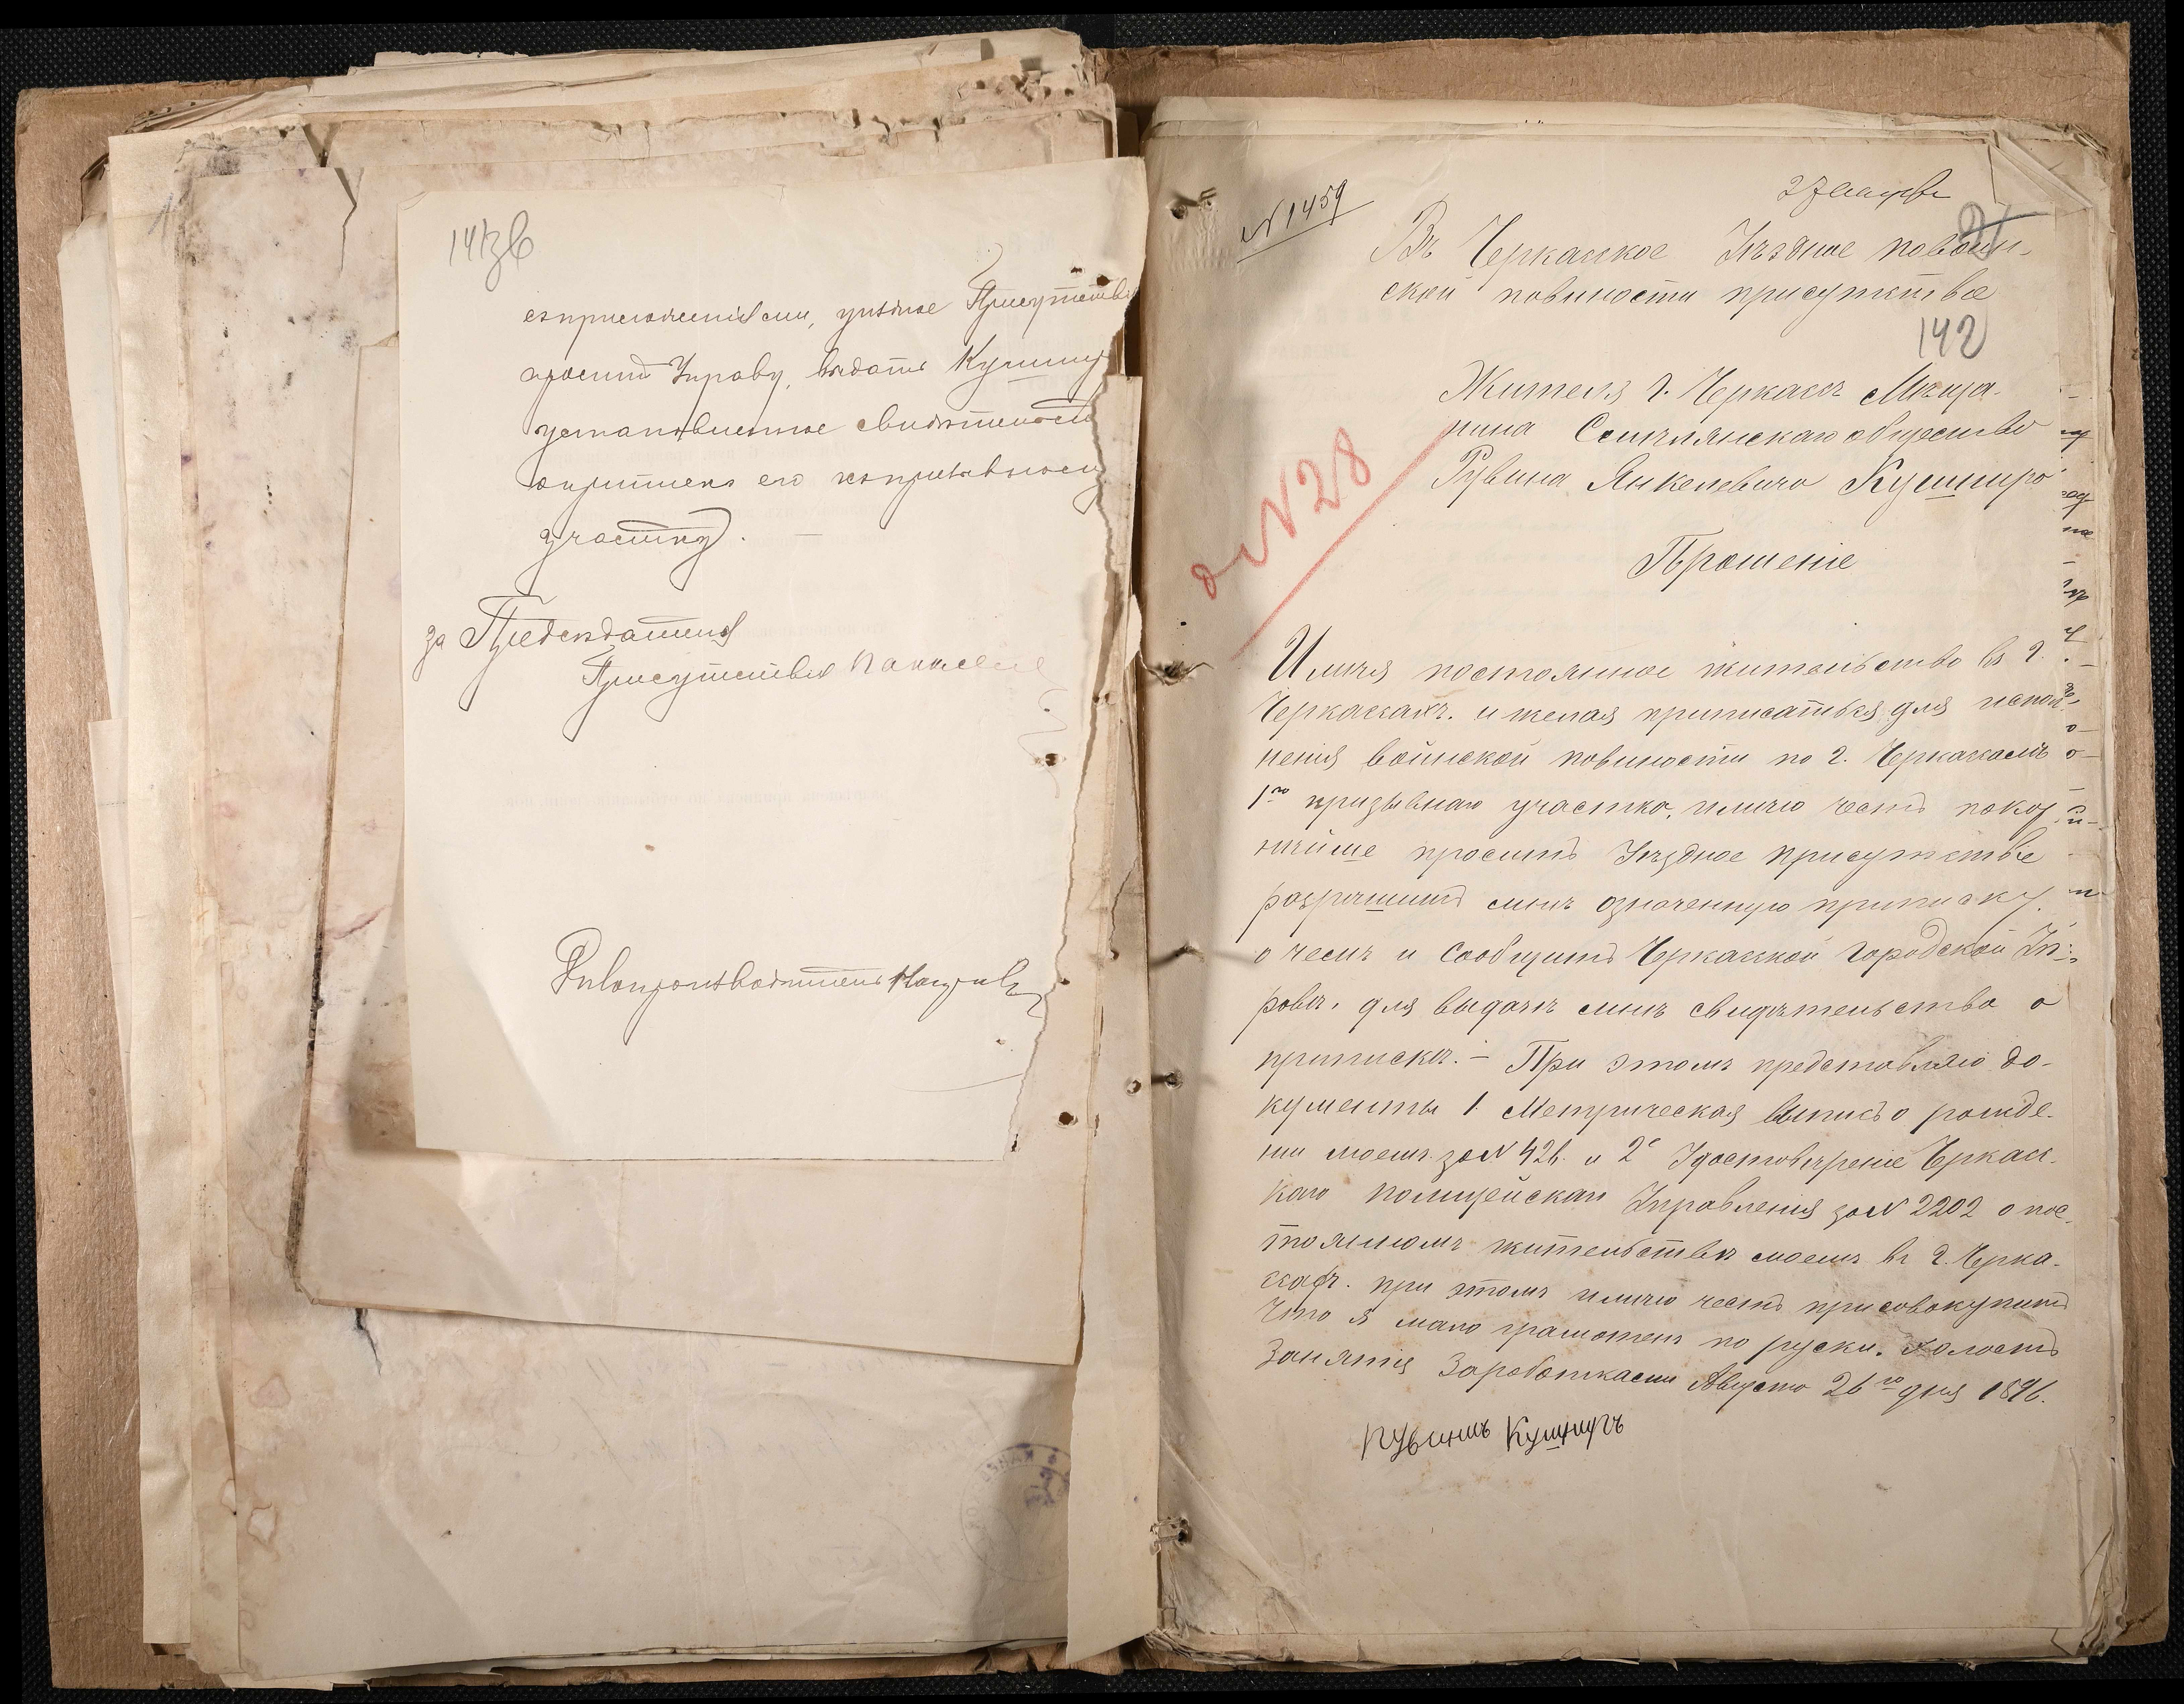 141зв
съ приложеніями, уѣздное Присутствіе
просить Управу, выдать Кушниру
установленное свидѣтельство
о припискѣ его къ призывному
участку. —
за Предсѣдателя
Присутствія
Дѣлопроизводитель
N 1459
Въ Черкаское Уѣздное по воин-
ской повиности присутствіе
142
Жителя г. Черкасъ Мѣща-
нина Смѣлянскаго общества
Рувина Янкелевича Кушнира
N 28
Прошеніе
Имѣя постоянное жительство въ г.
Черкасахъ. и желая приписаться для испол-
ненія воинской повиности по г. Черкасамъ
1го призывнаго участка, имѣю честь покор-
нѣйше просить Уѣздное присутствіе
разрѣшить мнѣ означенную приписку.
о чемъ и сообщить Черкаской городской Уп-
равѣ, для выдачѣ мнѣ свидѣтельства о
припискѣ. – При этомъ представляю до-
кументы 1. Метрическая выпись о рожде-
нии моемъ за N 426. и 2е Удостовѣреніе Черкас-
каго полицейскаго Управленія за N 2202 о пос-
тоянномъ жительствѣ моемъ въ г. Черка-
сахъ. при этомъ имѣю честь присовокупить
что я мало грамотенъ по руски. холостъ
Занятія Заработками Августа 26го дня 1896.
Рувинъ Кушниръ